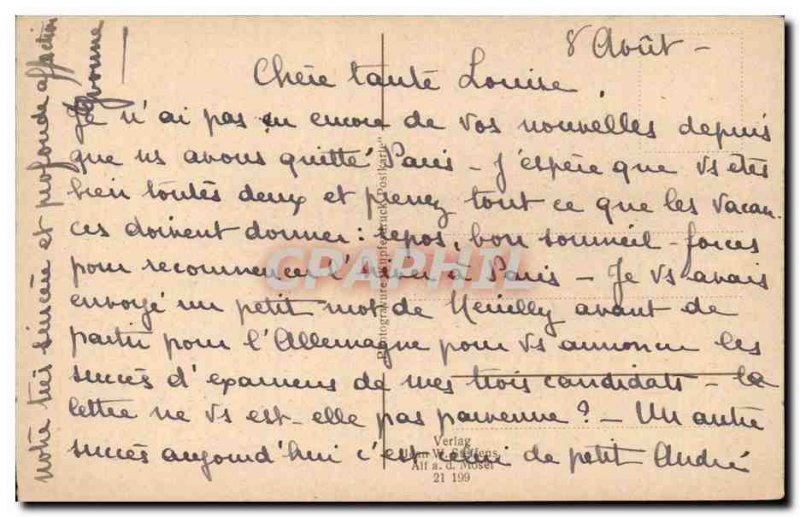 8 Août -
Chère tante Louise,
Je n'ai pas eu encore de vos nouvelles depuis
que ns avons quitté Paris - J'espère que vs êtes
bien toutes deux et prenez tout ce que les vacan-
ces doivent donner : repos, bon sommeil - forces
pour recommencer l'hiver à Paris - Je vs avais
envoyé un petit mot de Neuilly avant de
partir pour l'Allemagne pour vs annoncer les
succès d'examens de mes trois candidats - la
lettre ne vs est-elle pas parvenue ? - Un autre
succès aujourd'hui c'est celui de petit André
notre très sincère et profonde affection
Yvonne
CPAPHIL
Photogravure Kupfertiefdruck Postkarte
Verlag
W. Steffens
Alf a. d. Mosel
21 199